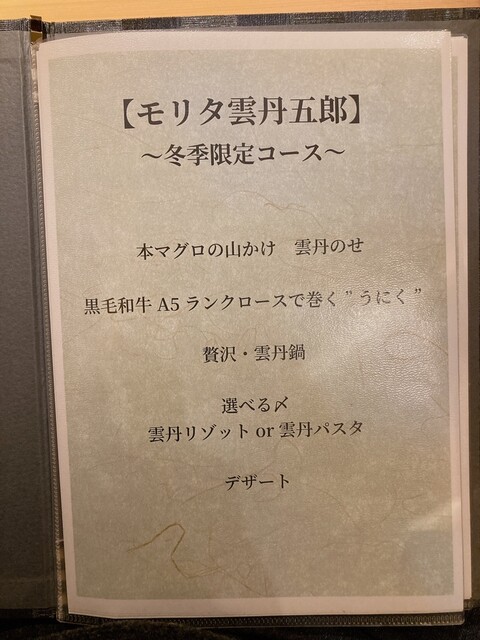 【モリタ雲丹五郎】
～冬季限定コース～
本マグロの山かけ　雲丹のせ
黒毛和牛 A5 ランクロースで巻く ” うにく ”
贅沢・雲丹鍋
選べる〆
雲丹リゾット or 雲丹パスタ
デザート